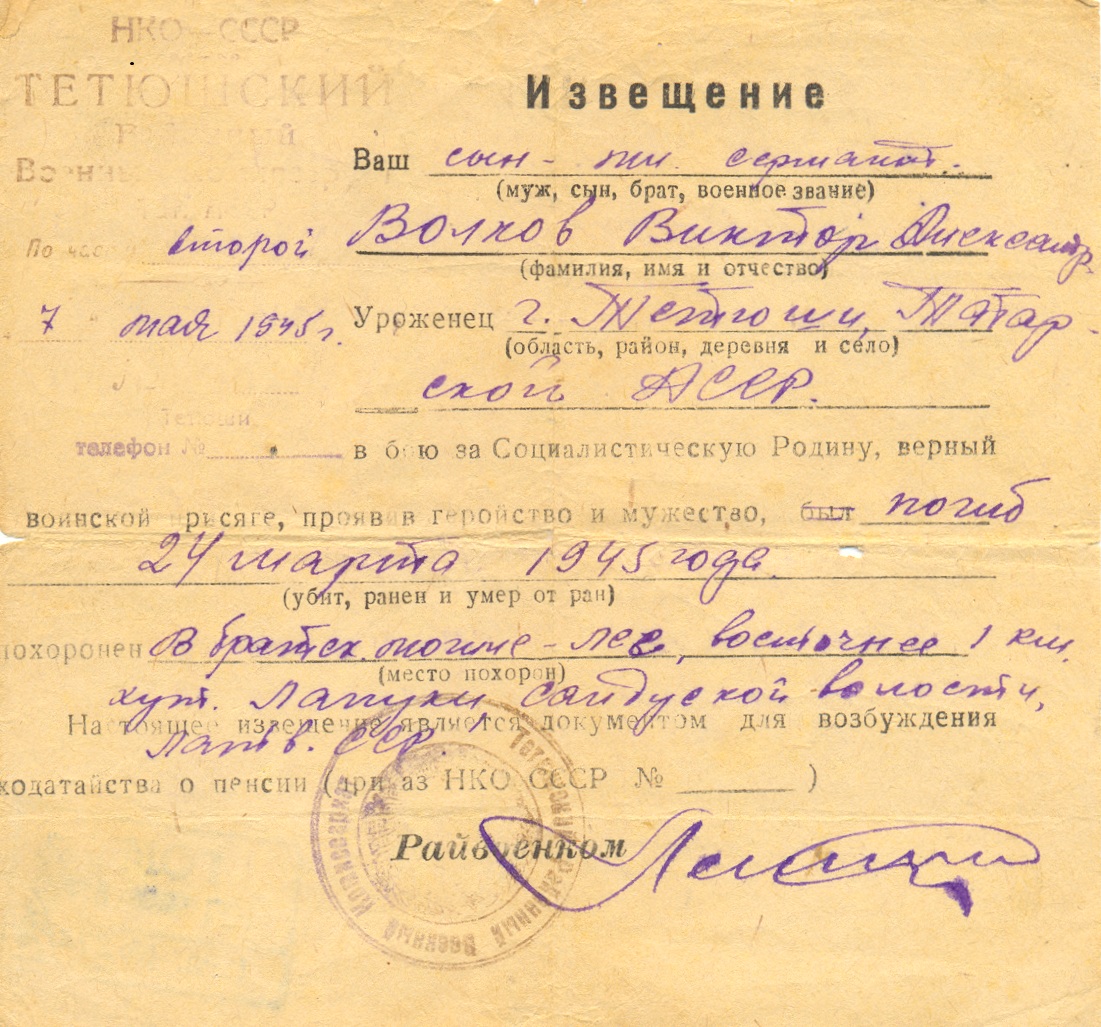 НКО СССР
ТЕТЮШСКИЙ
Извещение
Ваш сын - мл. сержант.
(муж, сын, брат, военное звание)
По части второй
Волков Виктор Александр.
(фамилия, имя и отчество)
7 мая 1945 г.
Уроженец г. Тетюши, Татар-
(область, район, деревня и село)
ской АССР.
Тетюши
телефон №
в бою за Социалистическую Родину, верный
воинской рисяге, проявив геройство и мужество, был погиб
24 марта 1945 года.
(убит, ранен и умер от ран)
похоронен в братск. могиле - лес, восточнее 1 км.
(место похорон)
хут. Лапуки, Сандуской волости,
Настоящее извещение является документом для возбуждения
Латв. ССР.
ходатайства о пенсии (приказ НКО СССР № )
Райвоенком
Тетюшский Районный Военный Комиссариат